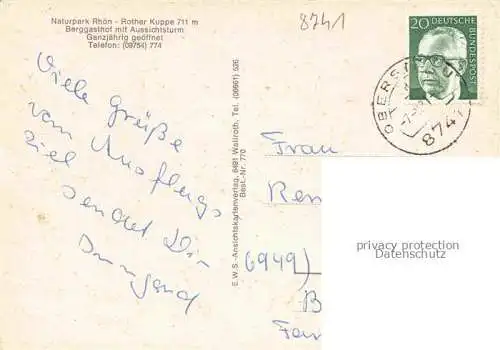 Naturpark Rhön - Rother Kuppe 711 m
Berggasthof mit Aussichtsturm
Ganzjährig geöffnet
Telefon: (09754) 774
8741
20 DEUTSCHE
BUNDESPOST
OBERS
8741
Viele Grüße
vom Ausflugs
ziel
sendet Dir
E.W.S.-Ansichtskartenverlag, 6491 Wallroth, Tel. (06661) 526
Best.-Nr. 770
Frau
Ren
6949)
B
privacy protection
Datenschutz